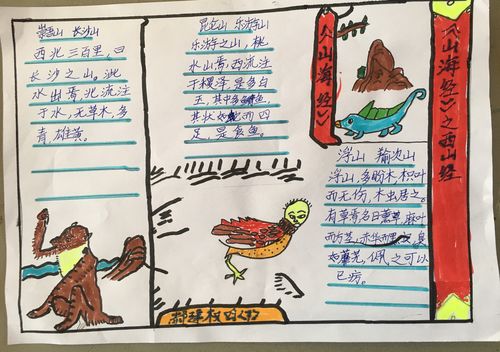 崇吾山 长沙山
西北三百里,曰
长沙之山,泚
水出焉,北流注
于水,无草木,多
青雄黄。
昆仑山 乐游山
乐游之山,桃
水出焉,西流注
于稷泽,是多白
玉,其中多鱼,
其状如蛇而四
足,是食鱼。
《山海经》
浮山 羭次山
浮山,多盼木,枳叶
而无伤,木虫居之。
有草焉,名曰薰草,麻叶
而方茎,赤华而黑实,臭
如蘼芜,佩之可以
已疠。
《山海经》之西山经